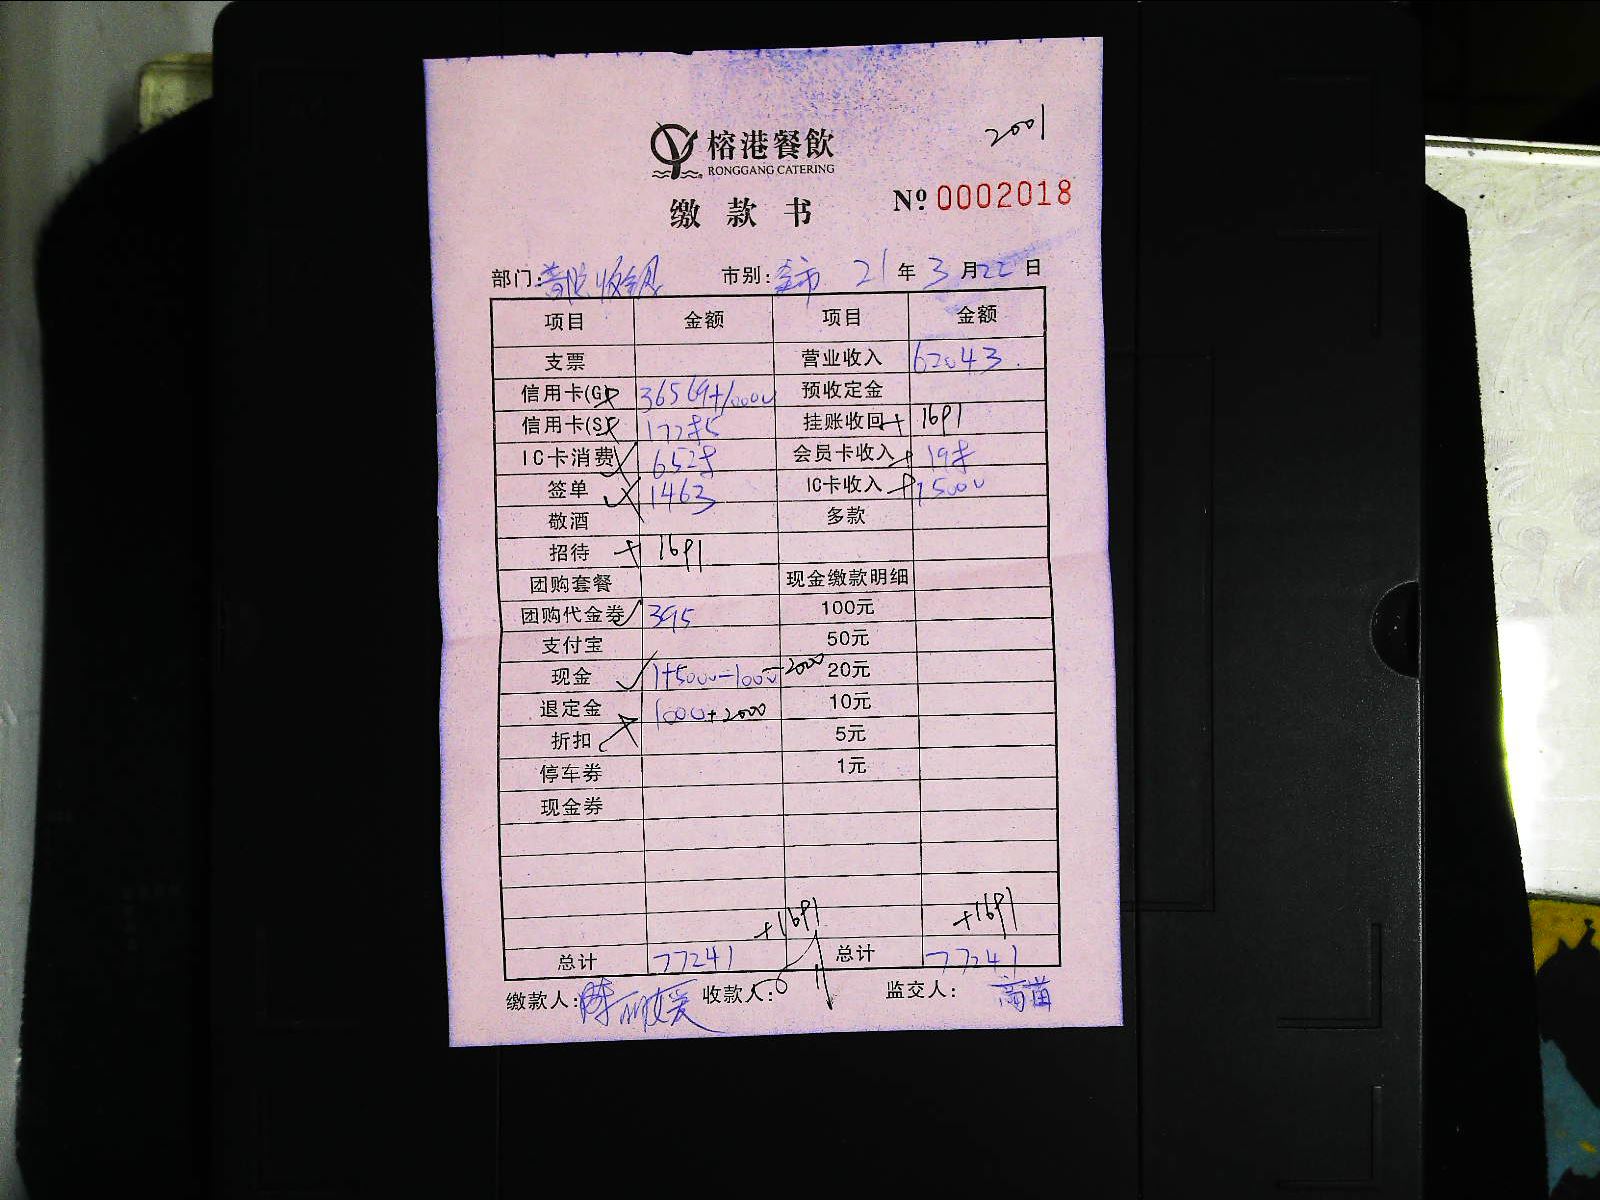 2001
榕港餐飲
RONGGANG CATERING
缴款书
Nº 0002018
部门: 市别: 全市 21年3月22日
项目 金额 项目 金额
支票 营业收入 62043.
信用卡(G) 36569+1000 预收定金
信用卡(S) 挂账收回+ 1691
IC卡消费 会员卡收入+
签单 1463 IC卡收入+ 15000
敬酒 多款
招待 + 1691
团购套餐 现金缴款明细
团购代金券 395 100元
支付宝 50元
现金 1+5000-1000-2000 20元
退定金 1000+2000 10元
折扣 5元
停车券 1元
现金券
+1691 +1691
总计 77241 总计 77241
缴款人: 收款人: 监交人: